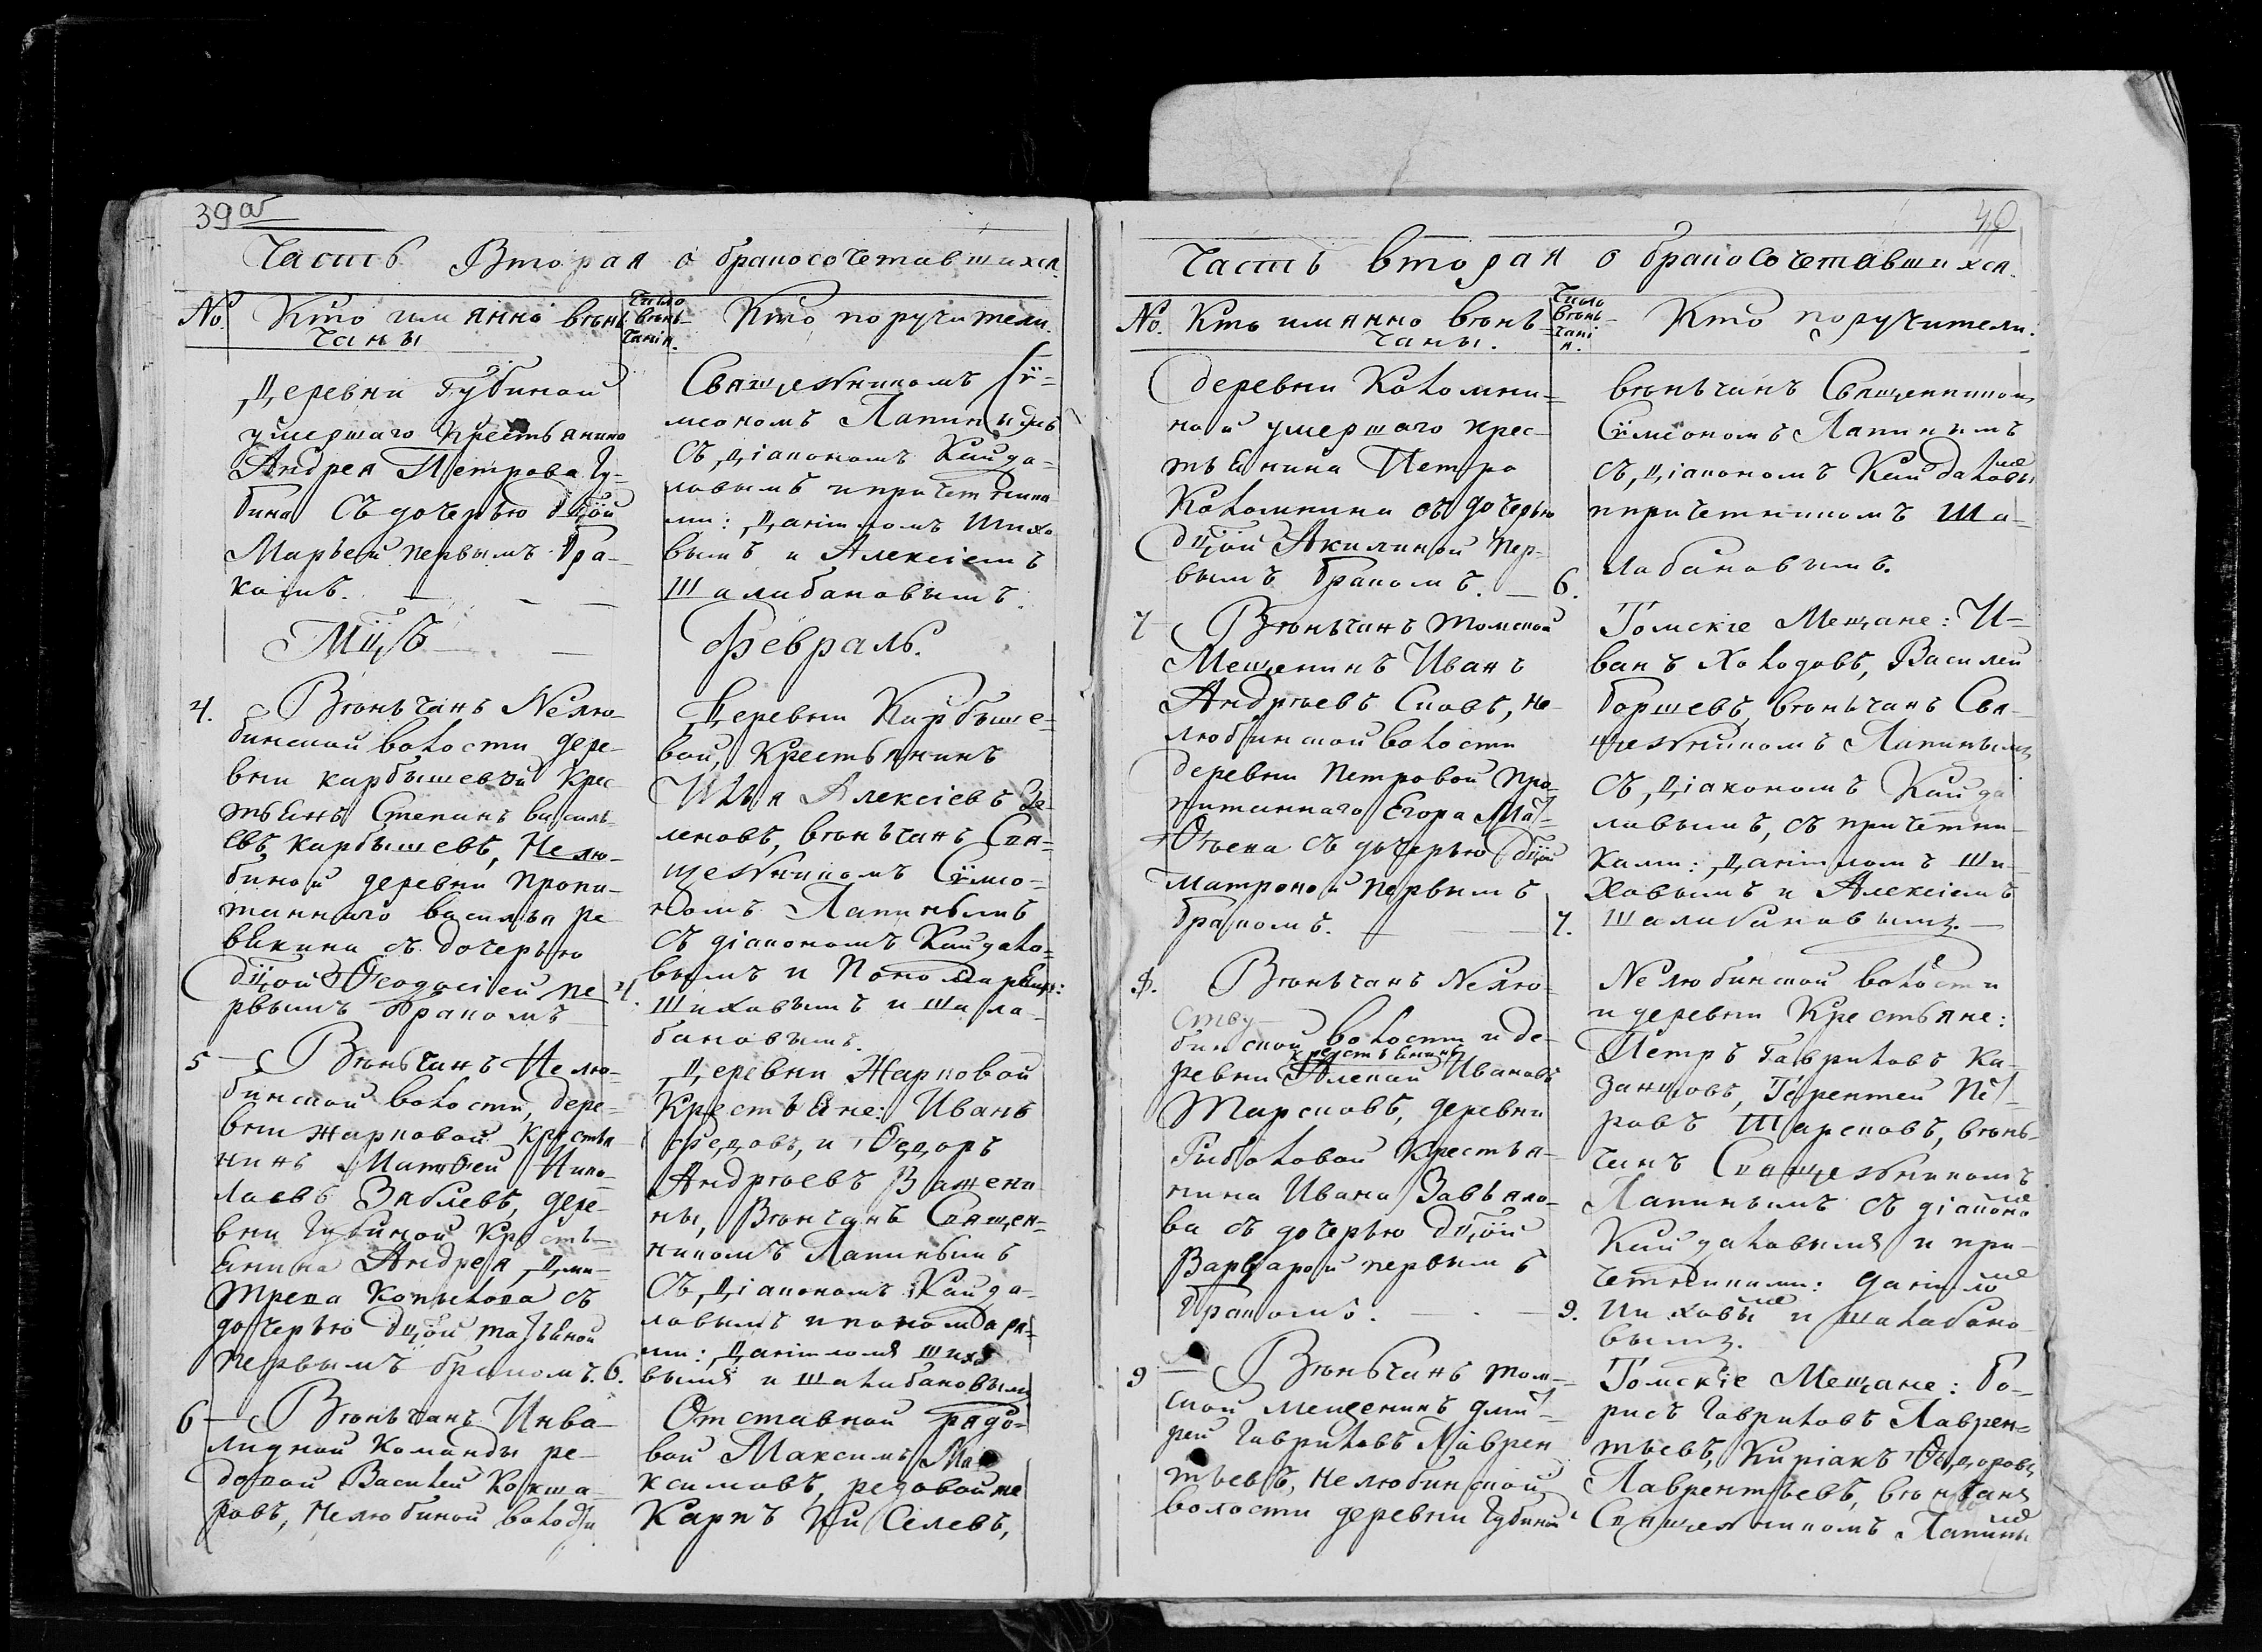 39 об
Часть Вторая о бракосочетавшихся.
No. Кто имянно вѣнь-
чаны
Число
вѣнь-
чанія.
Кто поручители.
Деревни Губиной
умершаго Крестьянина
Андрея Петрова Гу-
бина съ дочерью дѣвцой
Марьей первымъ бра-
комъ.
Священникомъ Сѵ-
меономъ Лапинымъ
съ діакономъ Кайда-
ловымъ и причетника
ми: Даніиломъ Шихо
вымъ и Алексіемъ
Шалабановымъ.
Мцъ Февраль.
4. Вѣньчанъ Нелю-
бинской волости дере-
вни карбышевой Крес
тьянъ Степанъ василь-
евъ карбышевъ, Нелю-
биной деревни пропи-
таннаго василья ре
вякина съ дочерью
дцой Ѳеодосіей пе
рвымъ бракомъ
4.
Деревни Карбыше-
вой, Крестьянинъ
Илья Алексіевъ Зе-
леновъ, вѣньчанъ Свя-
щенникомъ Сѵмео-
номъ Лапинымъ
съ діакономъ Кайдало-
вымъ и Пономарями:
Шиховымъ и Шала-
бановымъ.
5 Вѣньчанъ Нелю-
бинской волости, дере-
вни Жарковой Крестья
нинъ Матѳей Нико-
лаевъ Зяблевъ, дере-
вни Губиной Кресть-
янина Андрея Дми-
трева Копылова съ
дочерью дцой татьяной
первымъ бракомъ. 6.
Деревни Жарковой
Крестьяне: Иванъ
средовъ, и Ѳедоръ
Андрѣевъ Важени
ны, Вѣнчанъ Священ-
никомъ Лапинымъ
съ Діакономъ Кайда-
ловымъ и пономаря-
ми: Даніиломъ шихо
вымъ и Шалабановымъ
6 Вѣньчанъ Инва-
лидной Команды ре-
довой Василей Кокша-
ровъ, Нелюбиной волости
Отставной рядо-
вой Максимъ Ма
ксимовъ, редовой же
Карпъ Ки Селевъ,
40
Часть вторая о бракосочетавшихся.
No. Кто имянно вѣнь-
чаны.
Число
вѣнь-
чані
я.
Кто поручители.
деревни Коломни-
ной умершаго крес-
тьянина Петра
Коломнина съ дочерью
дцой Акилиной пер-
вымъ бракомъ. 6.
вѣньчанъ Священникомъ
Сѵмеономъ Лапинымъ
съ Діакономъ Кайдаловы
и причетникомъ Ша-
лабановымъ.
7 Вѣньчанъ томской
Мещенинъ Иванъ
Андрѣевъ Сковъ, не-
любинской волости
деревни Петровой про-
питаннаго Егора Мат-
ѳѣева съ дочерью дцой
матроной первымъ
бракомъ. 7.
Томскіе Мещане: И-
ванъ Холодовъ, Василей
Боршевъ, вѣньчанъ Свя-
щенникомъ Лапинымъ
съ Діакономъ Кайда
ловымъ, съ причетни-
ками: Даніиломъ Ши-
ховымъ и Алексіемъ
Шалабановымъ.
8. Вѣньчанъ Нелю-
бинской волости и де-
ревни крестьянинъ Иванов
Шарсковъ, деревни
Рыболовой Крестья-
нина Ивана Завьяло-
ва съ дочерью дцой
Варварой первымъ
бракомъ. 9.
Нелюбинской волости
и деревни Крестьяне:
Петръ Гавриловъ Ка-
занцовъ, Терентей Пет
ровъ Шарсковъ, вѣнь-
чанъ Священникомъ
Лапинымъ съ діакономъ
Кайдаловымъ и при-
четниками: даніиломъ
Шиховымъ и шалабано
вымъ.
9 Вѣньчанъ том-
ской мещенинъ дмит-
рей Гавриловъ Лаврен
тьевъ, нелюбинской
волости деревни Губиной
Томскіе Мещане: Бо-
рисъ Гавриловъ Лаврен-
тьевъ, Киріакъ Ѳедоровъ
Лаврентьевъ, вѣнчанъ
Священникомъ Лапинымъ